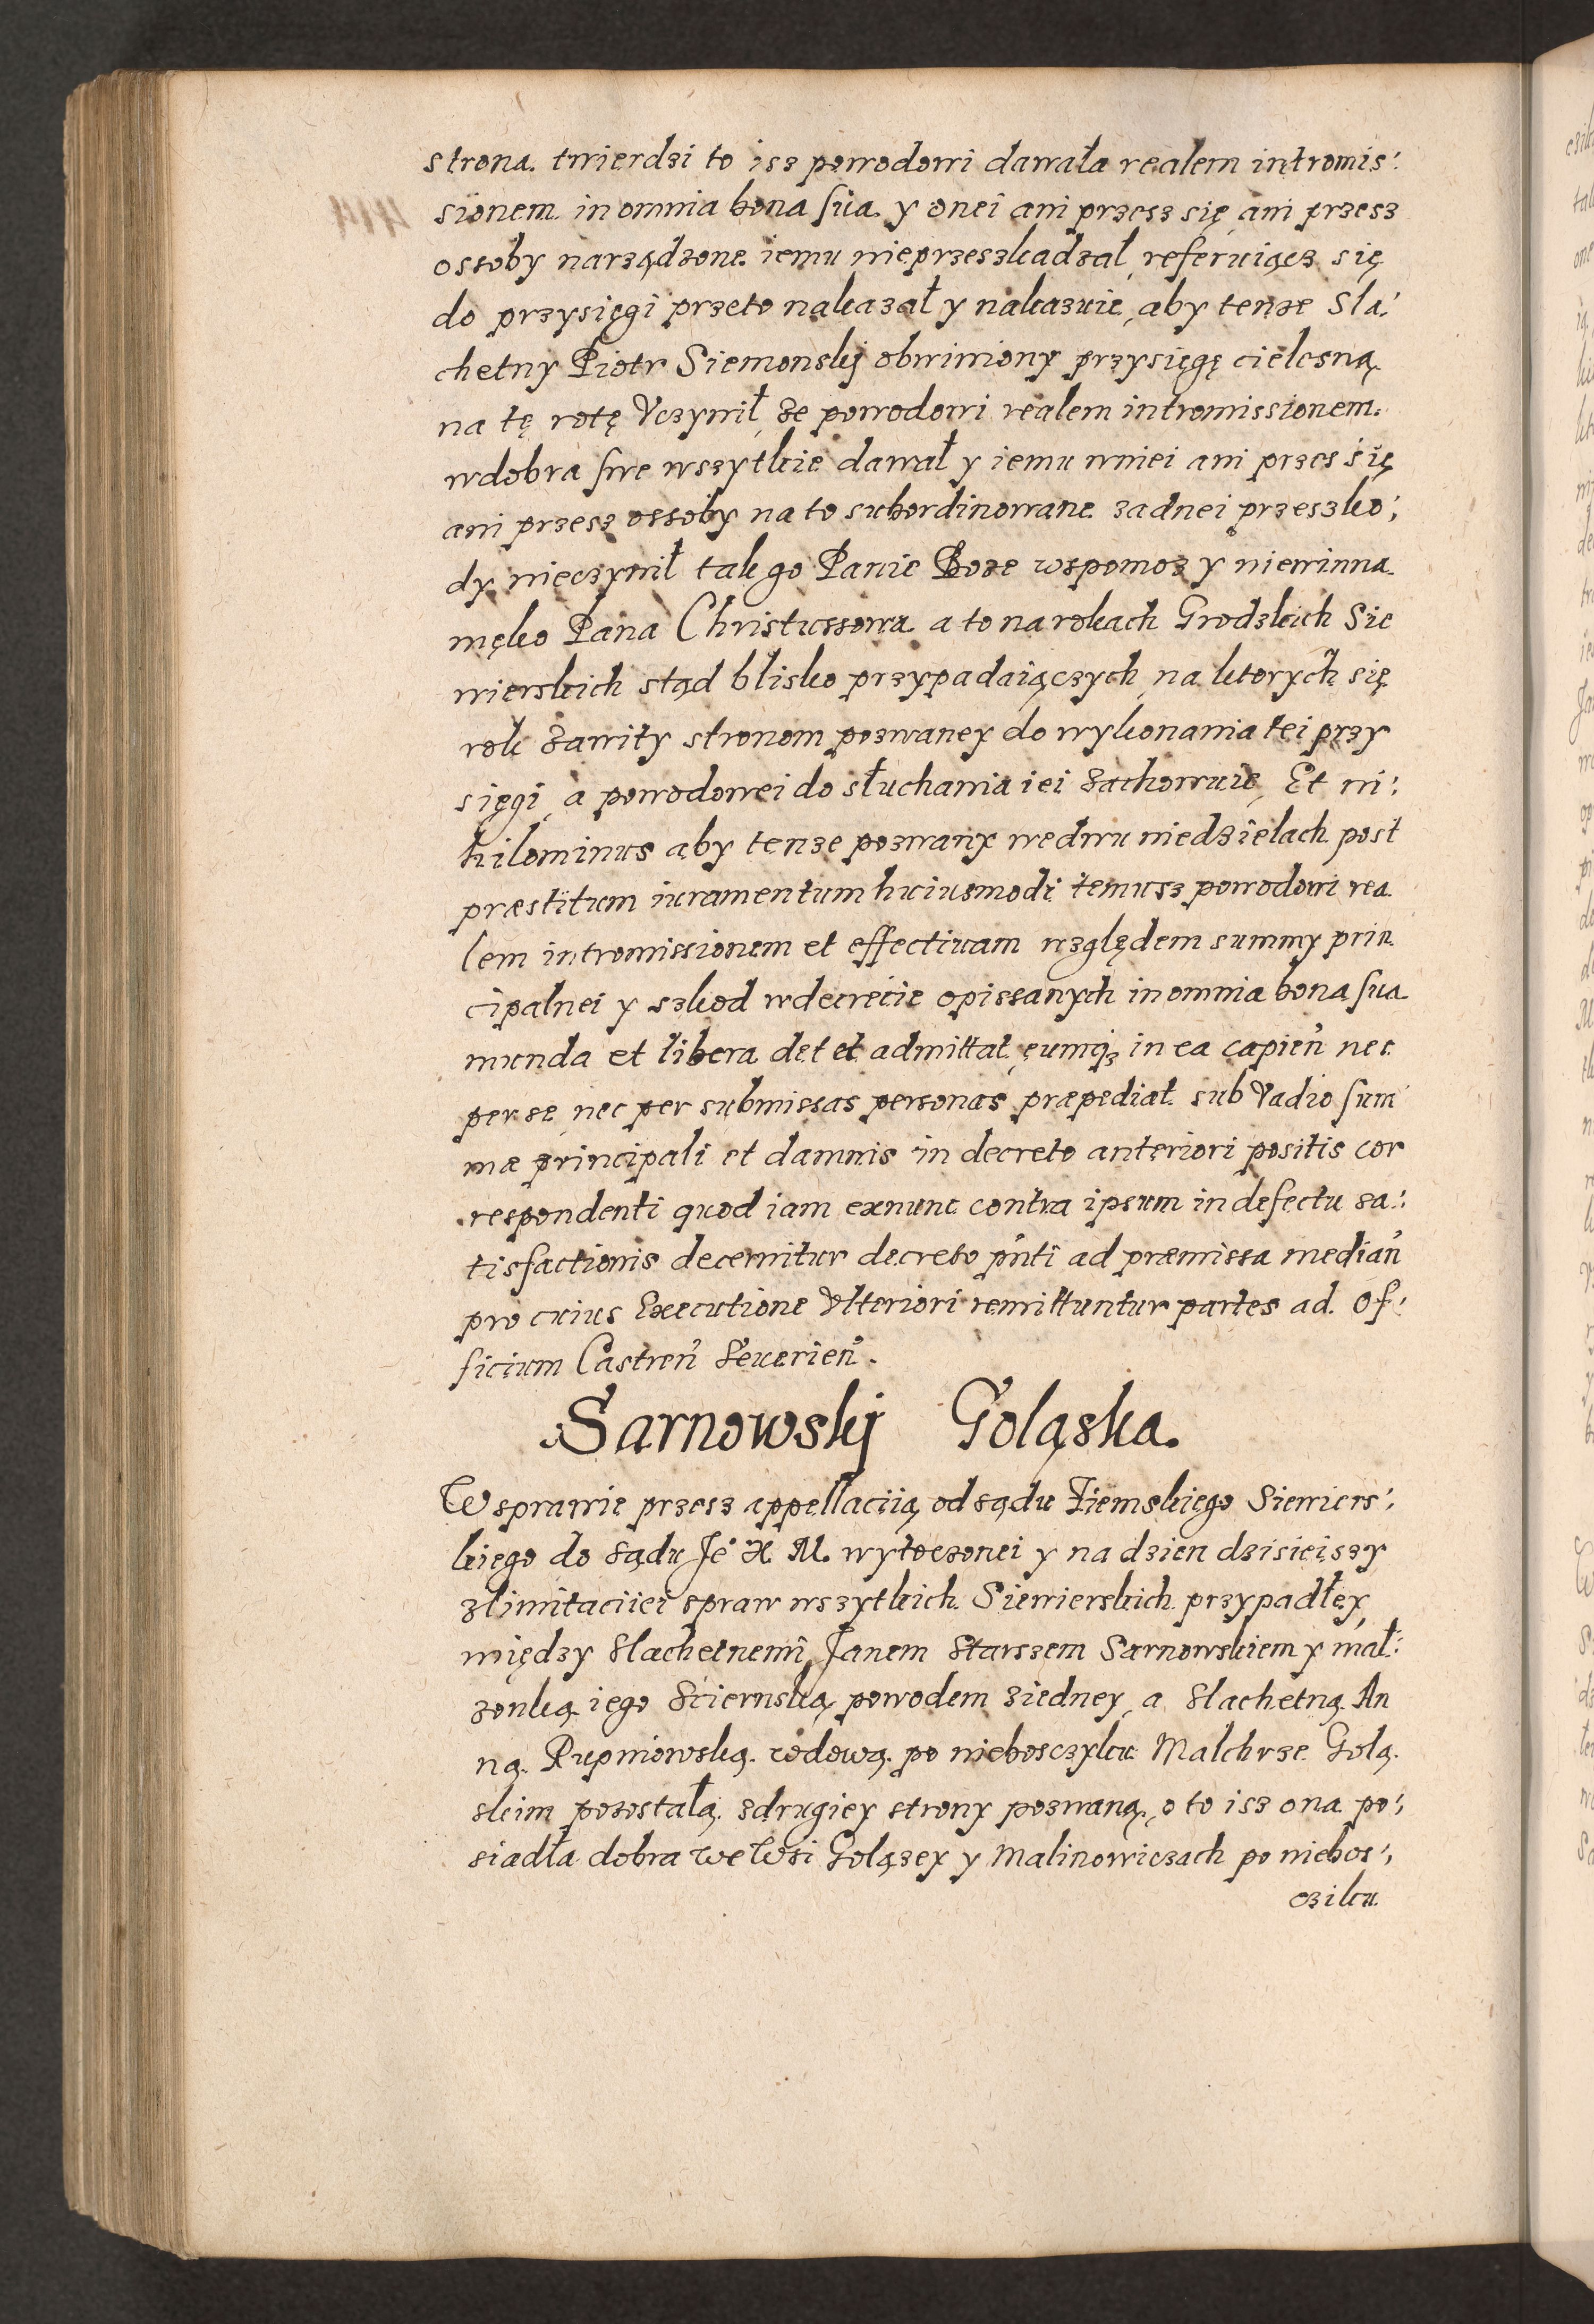 strona twierdzi to isz powodowi dawała realem intromis:
sionem in omnia bona sua y onei ani przesz się ani przesz
ossoby narządzone iemu nieprzeszkadzał, referuiącz się
do przysięgi przeto nakazał y nakazuie, aby tenze Sla:
chetny Piotr Siemonskj obwiniony przysięgę cielesną
na tę rotę Vczynił, ze powodowi realem intromissionem
wdobra swe wszytkie dawał y iemu wniei ani przes się
ani przesz ossoby na to subordinowane zadnei przeszko:
dy nieczynił tak go Panie Boze wspomoz y niewinna
męko Pana Christussowa a to na rokach Grodzkich Sie
wierskich stąd blisko przypadaiączych, na ktorych się
rok zawity stronom pozwaney do wykonania tei przy
sięgi, a powodowei do słuchania iei zachowuie, Et ni:
hilominus aby tenze pozwany wedwu niedzielach post
præstitum iuramentum huiusmodi temusz powodowi rea
lem intromissionem et effectiuam względem summy prin
cipalnei y szkod wdecrecie opissanych in omnia bona sua
munda et libera det et admittat, eumq3 in ea capien̉ nec
per se, nec per submissas personas præpediat sub Vadio sum
mæ principali et damnis in decreto anteriori positis cor
respondenti quod iam exnunc contra ipsum in defectu sa:
tisfactionis decernitur decreto pn̄ti ad præmissa median̉
pro cuius Executione Vlteriori remittuntur partes ad Of:
ficium Castren̉ Seuerien̉.
Sarnowskj Goląska.
W sprawie przesz appellaciią od sądu Ziemskiego Siewiers:
kiego do sądu Je° X M. wytoczonei y na dzien dzisieiszy
zlimitaciiei spraw wszytkich Siewierskich przypadłey,
między slachetnemi, Janem Starszem Sarnowskiem y mał:
zonką iego Sciernską powodem ziedney, a slachetną An
ną Rupniowską wdową po nieboszczyku Malchrze Golą
skim pozostałą zdrugiey strony pozwaną, o to isz ona po:
siadła dobra we Wsi Goląszey y Malinowiczach po niebos:
cziku